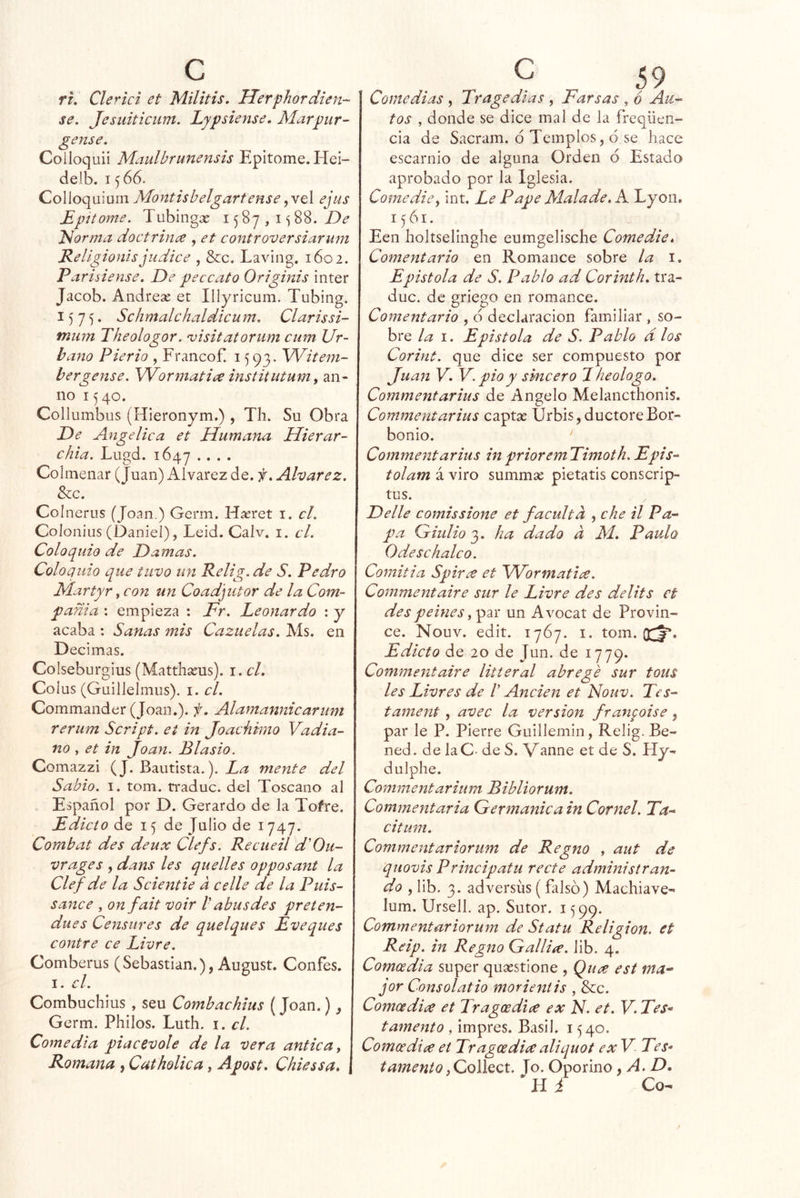 C
ri. Clerici et Militis. Herphordien-
se. Jesuiticum. Lypsiense. Marpur-
gense.
Colloquii Maulbrunensis Epitome. Hei-
delb. 1566.
Colloquium Montisbelgartense, vel ejus
Epitome. Tubingæ 1587, 1588. De
Norma doctrinæ, et controversiarum
Religionis judice, &c. Laving. 1602.
Parisiense. De peccato Originis inter
Jacob. Andreæ et Illyricum. Tubing.
1575. Schmalchaldicum. Clarissi-
mum Theologor. visitatorum cum Ur-
bano Pierio, Francof. 1593. Witem-
bergense. Wormatiæ institutum, an-
no 1540.
Collumbus (Hieronym.), Th. Su Obra
De Angelica et Humana Hierar-
chia. Lugd. 1647 . . . .
Colmenar (Juan) Alvarez de. ℣. Alvarez.
&c.
Colnerus (Joan.) Germ. Hæret 1. cl.
Colonius (Daniel), Leid. Calv. 1. cl.
Coloquio de Damas.
Coloquio que tuvo un Relig. de S. Pedro
Martyr, con un Coadjutor de la Com-
pañia : empieza : Fr. Leonardo : y
acaba : Sanas mis Cazuelas. Ms. en
Decimas.
Colseburgius (Matthæus). 1. cl.
Colus (Guillelmus). 1. cl.
Commander (Joan.). ℣. Alamannicarum
rerum Script. et in Joachimo Vadia-
no, et in Joan. Blasio.
Comazzi (J. Bautista.). La mente del
Sabio. 1. tom. traduc. del Toscano al
Español por D. Gerardo de la Tofre.
Edicto de 15 de Julio de 1747.
Combat des deux Clefs. Recueil d'Ou-
vrages, dans les quelles opposant la
Clef de la Scientie à celle de la Puis-
sance, on fait voir l'abusdes preten-
dues Censures de quelques Eveques
contre ce Livre.
Comberus (Sebastian.), August. Confes.
1. cl.
Combuchius, seu Combachius (Joan.),
Germ. Philos. Luth. 1. cl.
Comedia piacevole de la vera antica,
Romana, Catholica, Apost. Chiessa.
C 59
Comedias, Tragedias, Farsas, ó Au-
tos, donde se dice mal de la freqüen-
cia de Sacram. ó Templos, ó se hace
escarnio de alguna Orden ó Estado
aprobado por la Iglesia.
Comedie, int. Le Pape Malade. A Lyon.
1561.
Een holtselinghe eumgelische Comedie.
Comentario en Romance sobre la 1.
Epistola de S. Pablo ad Corinth. tra-
duc. de griego en romance.
Comentario, ó declaracion familiar, so-
bre la 1. Epistola de S. Pablo á los
Corint. que dice ser compuesto por
Juan V. V. pio y sincero Theologo.
Commentarius de Angelo Melancthonis.
Commentarius captæ Urbis, ductore Bor-
bonio.
Commentarius in priorem Timoth. Epis-
tolam á viro summæ pietatis conscrip-
tus.
Delle comissione et facultà, che il Pa-
pa Giulio 3. ha dado à M. Paulo
Odeschalco.
Comitia Spiræ et Wormatiæ.
Commentaire sur le Livre des delits et
des peines, par un Avocat de Provin-
ce. Nouv. edit. 1767. 1. tom. ☞.
Edicto de 20 de Jun. de 1779.
Commentaire litteral abregè sur tous
les Livres de l' Ancien et Nouv. Tes-
tament, avec la version françoise,
par le P. Pierre Guillemin, Relig. Be-
ned. de la C. de S. Vanne et de S. Hy-
dulphe.
Commentarium Bibliorum.
Commentaria Germanica in Cornel. Ta-
citum.
Commentariorum de Regno, aut de
quovis Principatu recte administran-
do, lib. 3. adversùs (falsò) Machiave-
lum. Ursell. ap. Sutor. 1599.
Commentariorum de Statu Religion. et
Reip. in Regno Galliæ. lib. 4.
Comœdia super quæstione, Quæ est ma-
jor Consolatio morientis, &c.
Comœdiæ et Tragœdiæ ex N. et. V. Tes-
tamento, impres. Basil. 1540.
Comœdiæ et Tragœdiæ aliquot ex V. Tes-
tamento, Collect. Jo. Oporino, A. D.
H 2 Co-